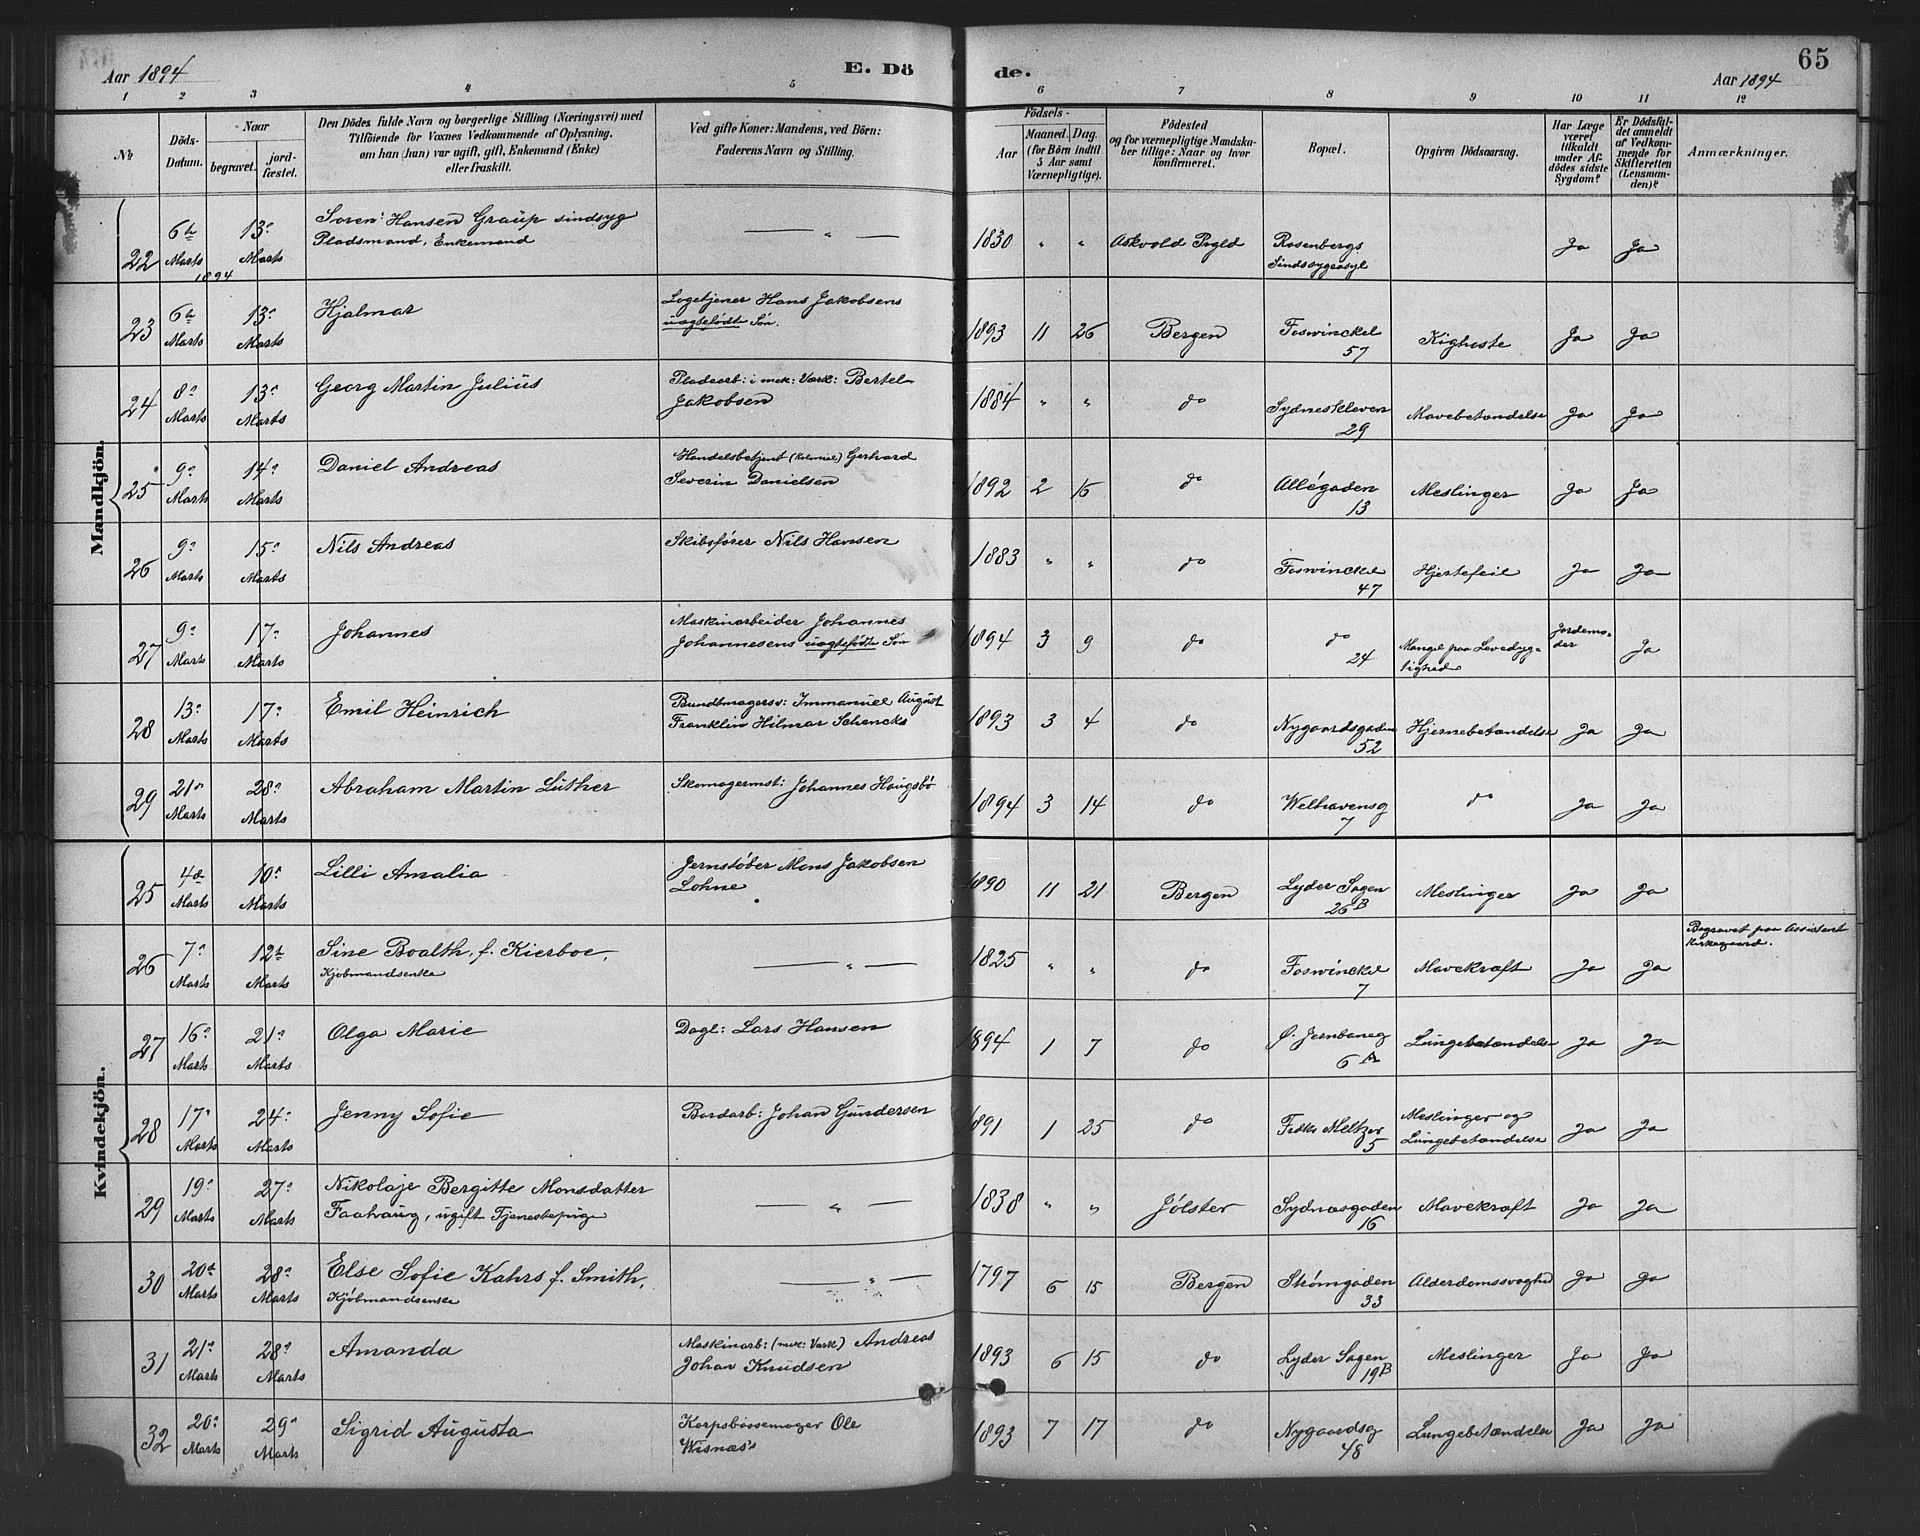 Aar 1894
E. Dö
de.
Aar 1894
65
1 2 3 4 5 6 7 8 9 10 11 12
№
Döds-Datum.
Naar
begravet.
jord-fæstet.
Den Dödes fulde Navn og borgerlige Stilling (Næringsvei) med
Tilföiende for Voxnes Vedkommende af Oplysning.
om han (hun) var ugift, gift, Enkemand (Enke)
eller fraskilt.
Ved gifte Koner: Mandens, ved Börn:
Faderens Navn og Stilling.
Födsels-
Aar
Maaned. Dag.
(for Börn indtil
5 Aar samt
Værnepligtige).
Födested
og for værnepligtige Mandska-
ber tillige: Naar og hvor
konfirmeret.
Bopæl.
Opgiven Dödsaarsag.
Har Læge
været
tilkaldt
under Af-
dödes sidste
Sygdom?
Er Dödsfal-
det anmeldt
af Vedkom-
mende for
Skifteretten
(Lensman-
den)?
Anmærkninger.
Mandkjön.
22 6te Marts 1894 13de Marts Soren Hansen Graup sindsyg
Pladsmand, Enkemand — " — 1830 " " Askvold Prgld Rosenbergs
Sindssygeasyl Ja Ja
23 6te Marts 13de Marts Hjalmar Logetjener Hans Jakobsens
uægtefødte Søn. 1893 11 26 Bergen Foswinckel
57 Kighoste Ja Ja
24 8de Marts 13de Marts Georg Martin Julius Pladearb: i mek: Værk: Bertel
Jakobsen 1884 " " do Sydneskleven
29 Mavebetændelse Ja Ja
25 9de Marts 14de Marts Daniel Andreas Handelsbetjent (kolonial) Gerhard
Severin Danielsen 1892 2 16 do Allégaden
13 Meslinger Ja Ja
26 9de Marts 15de Marts Nils Andreas Skibsfører Nils Hansen 1883 " " do Foswinckel
47 Hjertefeil Ja Ja
27 9de Marts 17de Marts Johannes Maskinarbeider Johannes
Johannesens uægtefødte Søn 1894 3 9 do do
24 Mangel paa Levedyg-
tighed Jordemo-
der Ja
28 13de Marts 17de Marts Emil Heinrich Bundtmagersv: Immanuel August
Franklin Hilmar Schencks 1893 3 4 do Nygaardsgaden
52 Hjernebetændelse Ja Ja
29 21de Marts 28de Marts Abraham Martin Luther Skomagermst: Johannes Haugsbø 1894 3 14 do Welhavensg
7 do Ja Ja
Kvindekjön.
25 4de Marts 10de Marts Lilli Amalia Jernstøber Mons Jakobsen
Lohne 1890 11 21 Bergen Lyder Sagen
26B Meslinger Ja Ja
26 7de Marts 12te Marts Sine Boalth, f. Kierboe,
Kjøbmandsenke — " — 1825 " " do Foswinckel
7 Mavekræft Ja Ja Begravet paa Assistent
kirkegaard.
27 16de Marts 21de Marts Olga Marie Dagl: Lars Hansen 1894 1 7 do Ø. Jernbaneg
6A Lungebetændelse Ja Ja
28 17de Marts 24de Marts Jenny Sofie Bordarb: Johan Gundersen 1891 1 25 do Fredks Meltzer
5 Meslinger og
Lungebetændelse Ja Ja
29 19de Marts 27de Marts Nikolaje Bergitte Monsdatter
Faahaug, ugift Tjenestepige — " — 1838 " " Jølster Sydnæsgaden
16 Mavekræft Ja Ja
30 20de Marts 28de Marts Else Sofie Kahrs f. Smith,
Kjøbmandsenke — " — 1797 6 15 Bergen Strømgaden
33 Alderdomssvaghed Ja Ja
31 21de Marts 28de Marts Amanda Maskinarb: (mek: Værk) Andreas
Johan Knudsen 1893 6 15 do Lyder Sagen
19B Meslinger Ja Ja
32 20de Marts 29de Marts Sigrid Augusta Korpsbøssemager Ole
Wisnæs's 1893 7 17 do Nygaardsg
48 Lungebetændelse Ja Ja